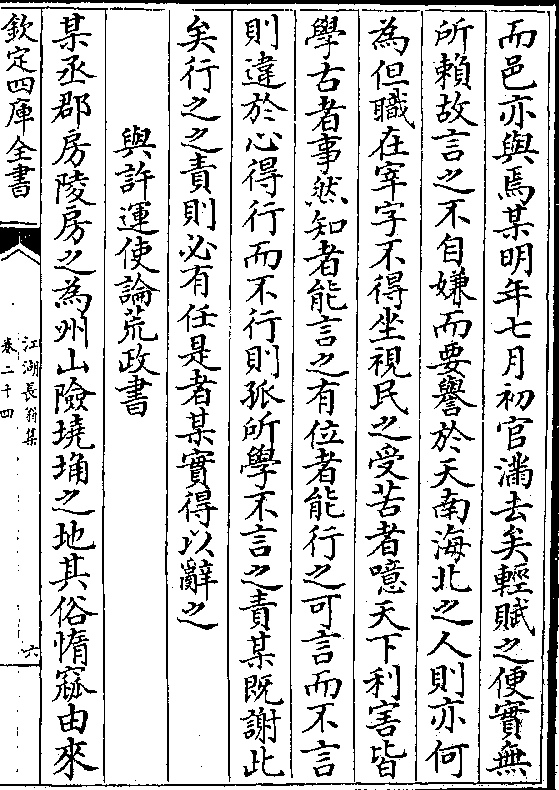 而邑亦與焉某明年七月初官滿去矣輕賦之便實無
所賴故言之不自嫌而要譽於天南海北之人則亦何
為但職在宰字不得坐視民之受苦者噫天下利害皆
學古者事然知者能言之有位者能行之可言而不言
則違於心得行而不行則孤所學不言之責某既謝此
矣行之之責則必有任是者某實得以辭之
與許運使論荒政書
某丞郡房陵房之為州山險墝埆之地其俗惰窳由來
欽定四庫全書
江湖長翁集
卷二十四
六